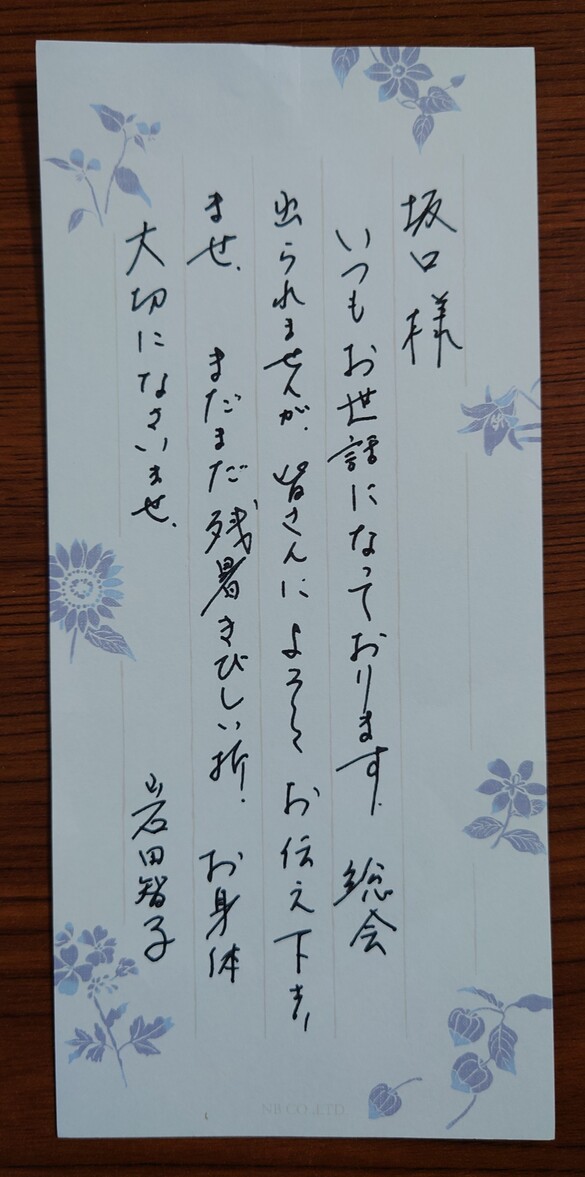 坂口様
いつもお世話になっております。総会
出られませんが、皆さんによろしくお伝え下さい
ませ。まだまだ残暑きびしい折、お身体
大切になさいませ。
岩田智子
NB CO.,LTD